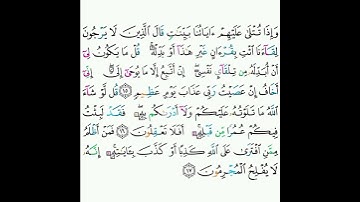 وَإِذَا تُتْلَىٰ عَلَيْهِمْ ءَايَاتُنَا بَيِّنَٰتٍ قَالَ ٱلَّذِينَ لَا يَرْجُونَ
لِقَآءَنَا ٱئْتِ بِقُرْءَانٍ غَيْرِ هَٰذَآ أَوْ بَدِّلْهُ ۚ قُلْ مَا يَكُونُ لِىٓ
أَنْ أُبَدِّلَهُۥ مِن تِلْقَآئِ نَفْسِىٓ ۖ إِنْ أَتَّبِعُ إِلَّا مَا يُوحَىٰٓ إِلَىَّ ۖ إِنِّىٓ
أَخَافُ إِنْ عَصَيْتُ رَبِّى عَذَابَ يَوْمٍ عَظِيمٍ ۝١٥ قُل لَّوْ شَآءَ
ٱللَّهُ مَا تَلَوْتُهُۥ عَلَيْكُمْ وَلَآ أَدْرَىٰكُم بِهِۦ ۖ فَقَدْ لَبِثْتُ
فِيكُمْ عُمُرًا مِّن قَبْلِهِۦٓ ۚ أَفَلَا تَعْقِلُونَ ۝١٦ فَمَنْ أَظْلَمُ
مِمَّنِ ٱفْتَرَىٰ عَلَى ٱللَّهِ كَذِبًا أَوْ كَذَّبَ بِـَٔايَٰتِهِۦٓ ۚ إِنَّهُۥ
لَا يُفْلِحُ ٱلْمُجْرِمُونَ ۝١٧